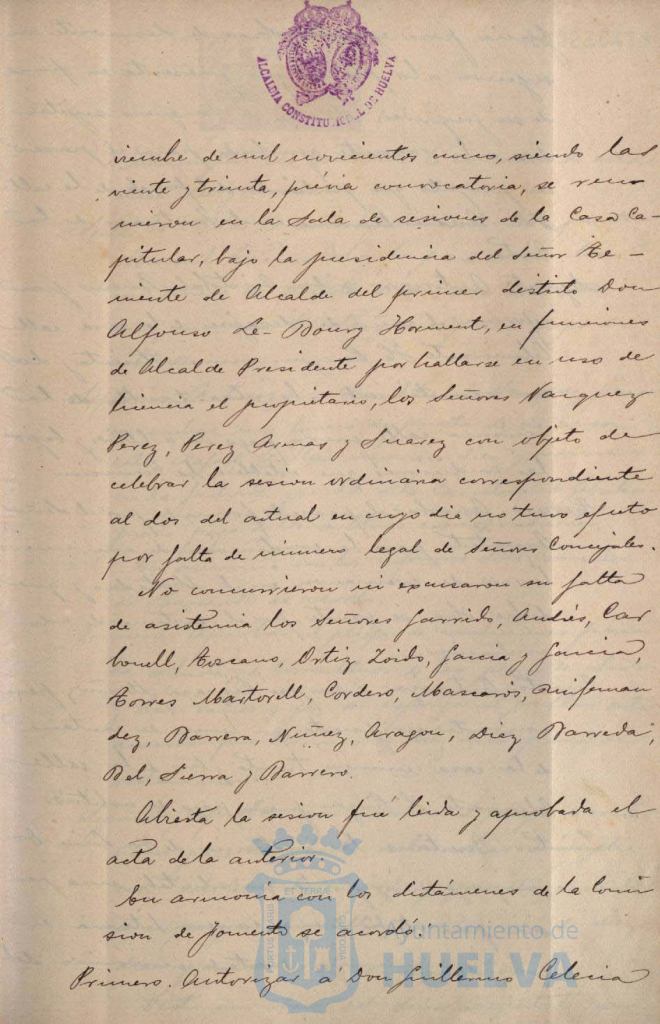 ALCALDIA CONSTITUCIONAL DE HUELVA
viembre de mil novecientos cinco, siendo las
veinte y treinta, prévia convocatoria, se reu
nieron en la Sala de sesiones de la Casa Ca-
pitular, bajo la presidencia del Señor Te-
niente de Alcalde del primer distrito Don
Alfonso Le-Bourg Horment, en funciones
de Alcalde Presidente por hallarse en uso de
licencia el propietario, los Señores Vazquez
Perez, Perez Armas y Suarez con objeto de
celebrar la sesion ordinaria correspondiente
al dos del actual en cuyo dia no tuvo efecto
por falta de número legal de Señores Concejales.
No concurrieron ni excusaron su falta
de asistencia los Señores Garrido, Andrés, Car
bonell, Toscano, Ortiz Zoido, Garcia y Garcia,
Torres Martorell, Cordero, Mascarós,
dez, Barrera, Nuñez, Aragon, Diez Barreda,
Bel, Sierra y Barrero.
Abierta la sesion fué leida y aprobada el
acta de la anterior.
En armonia con los dictámenes de la Comi
sion de Fomento se acordó:
Primero. Autorizar á Don Guillermo Celecia
PORTUS MARIS ET TERRAE CUSTODIA
Ayuntamiento de
HUELVA